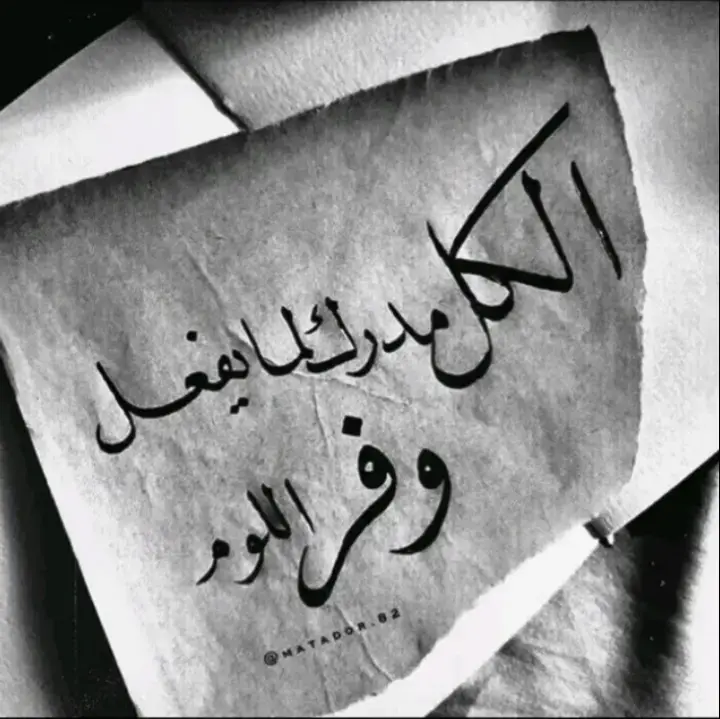 الكل مدرك لما يفعل
وفر اللوم
@MATADOR.82